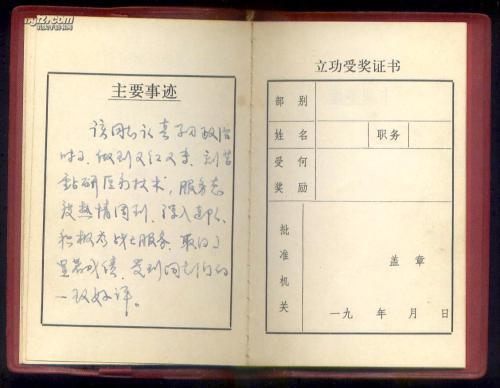 主要事迹
该同志认真学习政治
时事,做到又红又专,刻苦
钻研医疗技术,服务态
度热情周到,深入连队,
积极为战士服务,取得了
显著成绩,受到同志们的
一致好评。
立功受奖证书
部别
姓名 职务
受何奖励
批准机关
盖章
一九 年 月 日